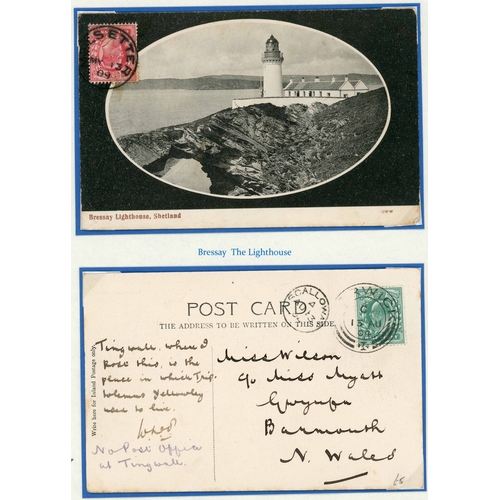 SETTER
09
Bressay Lighthouse, Shetland
Bressay The Lighthouse
POST CARD.
THE ADDRESS TO BE WRITTEN ON THIS SIDE.
Write here for Inland Postage only.
SCALLOWAY
WICK
Tingwall, where I
post this, is the
place in which Trip-
tolemus Yellowley
used to live.
No Post Office
at Tingwall.
Miss Wilson
c/o Miss Myatt
Gwynfa
Barmouth
N. Wales